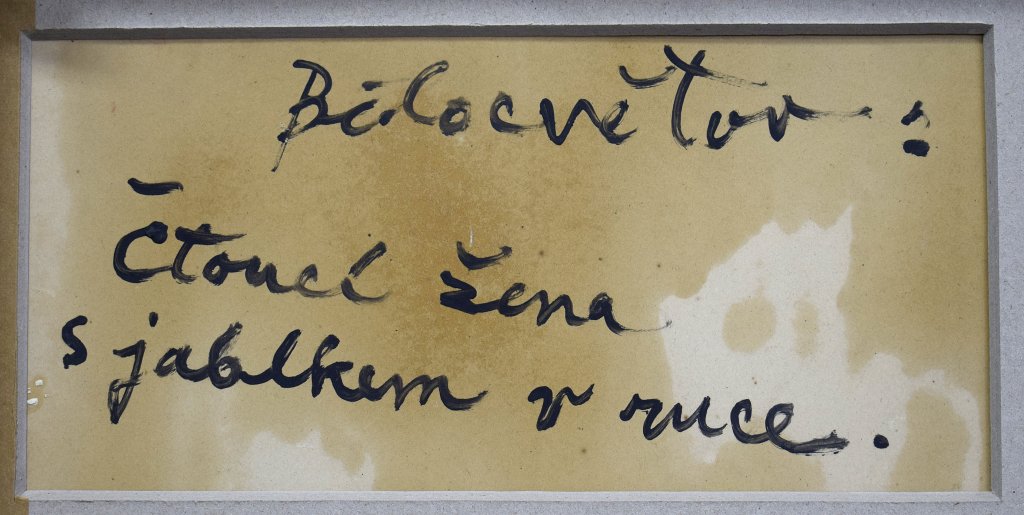 Bílocvětov:
Čtoucí žena
s jablkem v ruce.